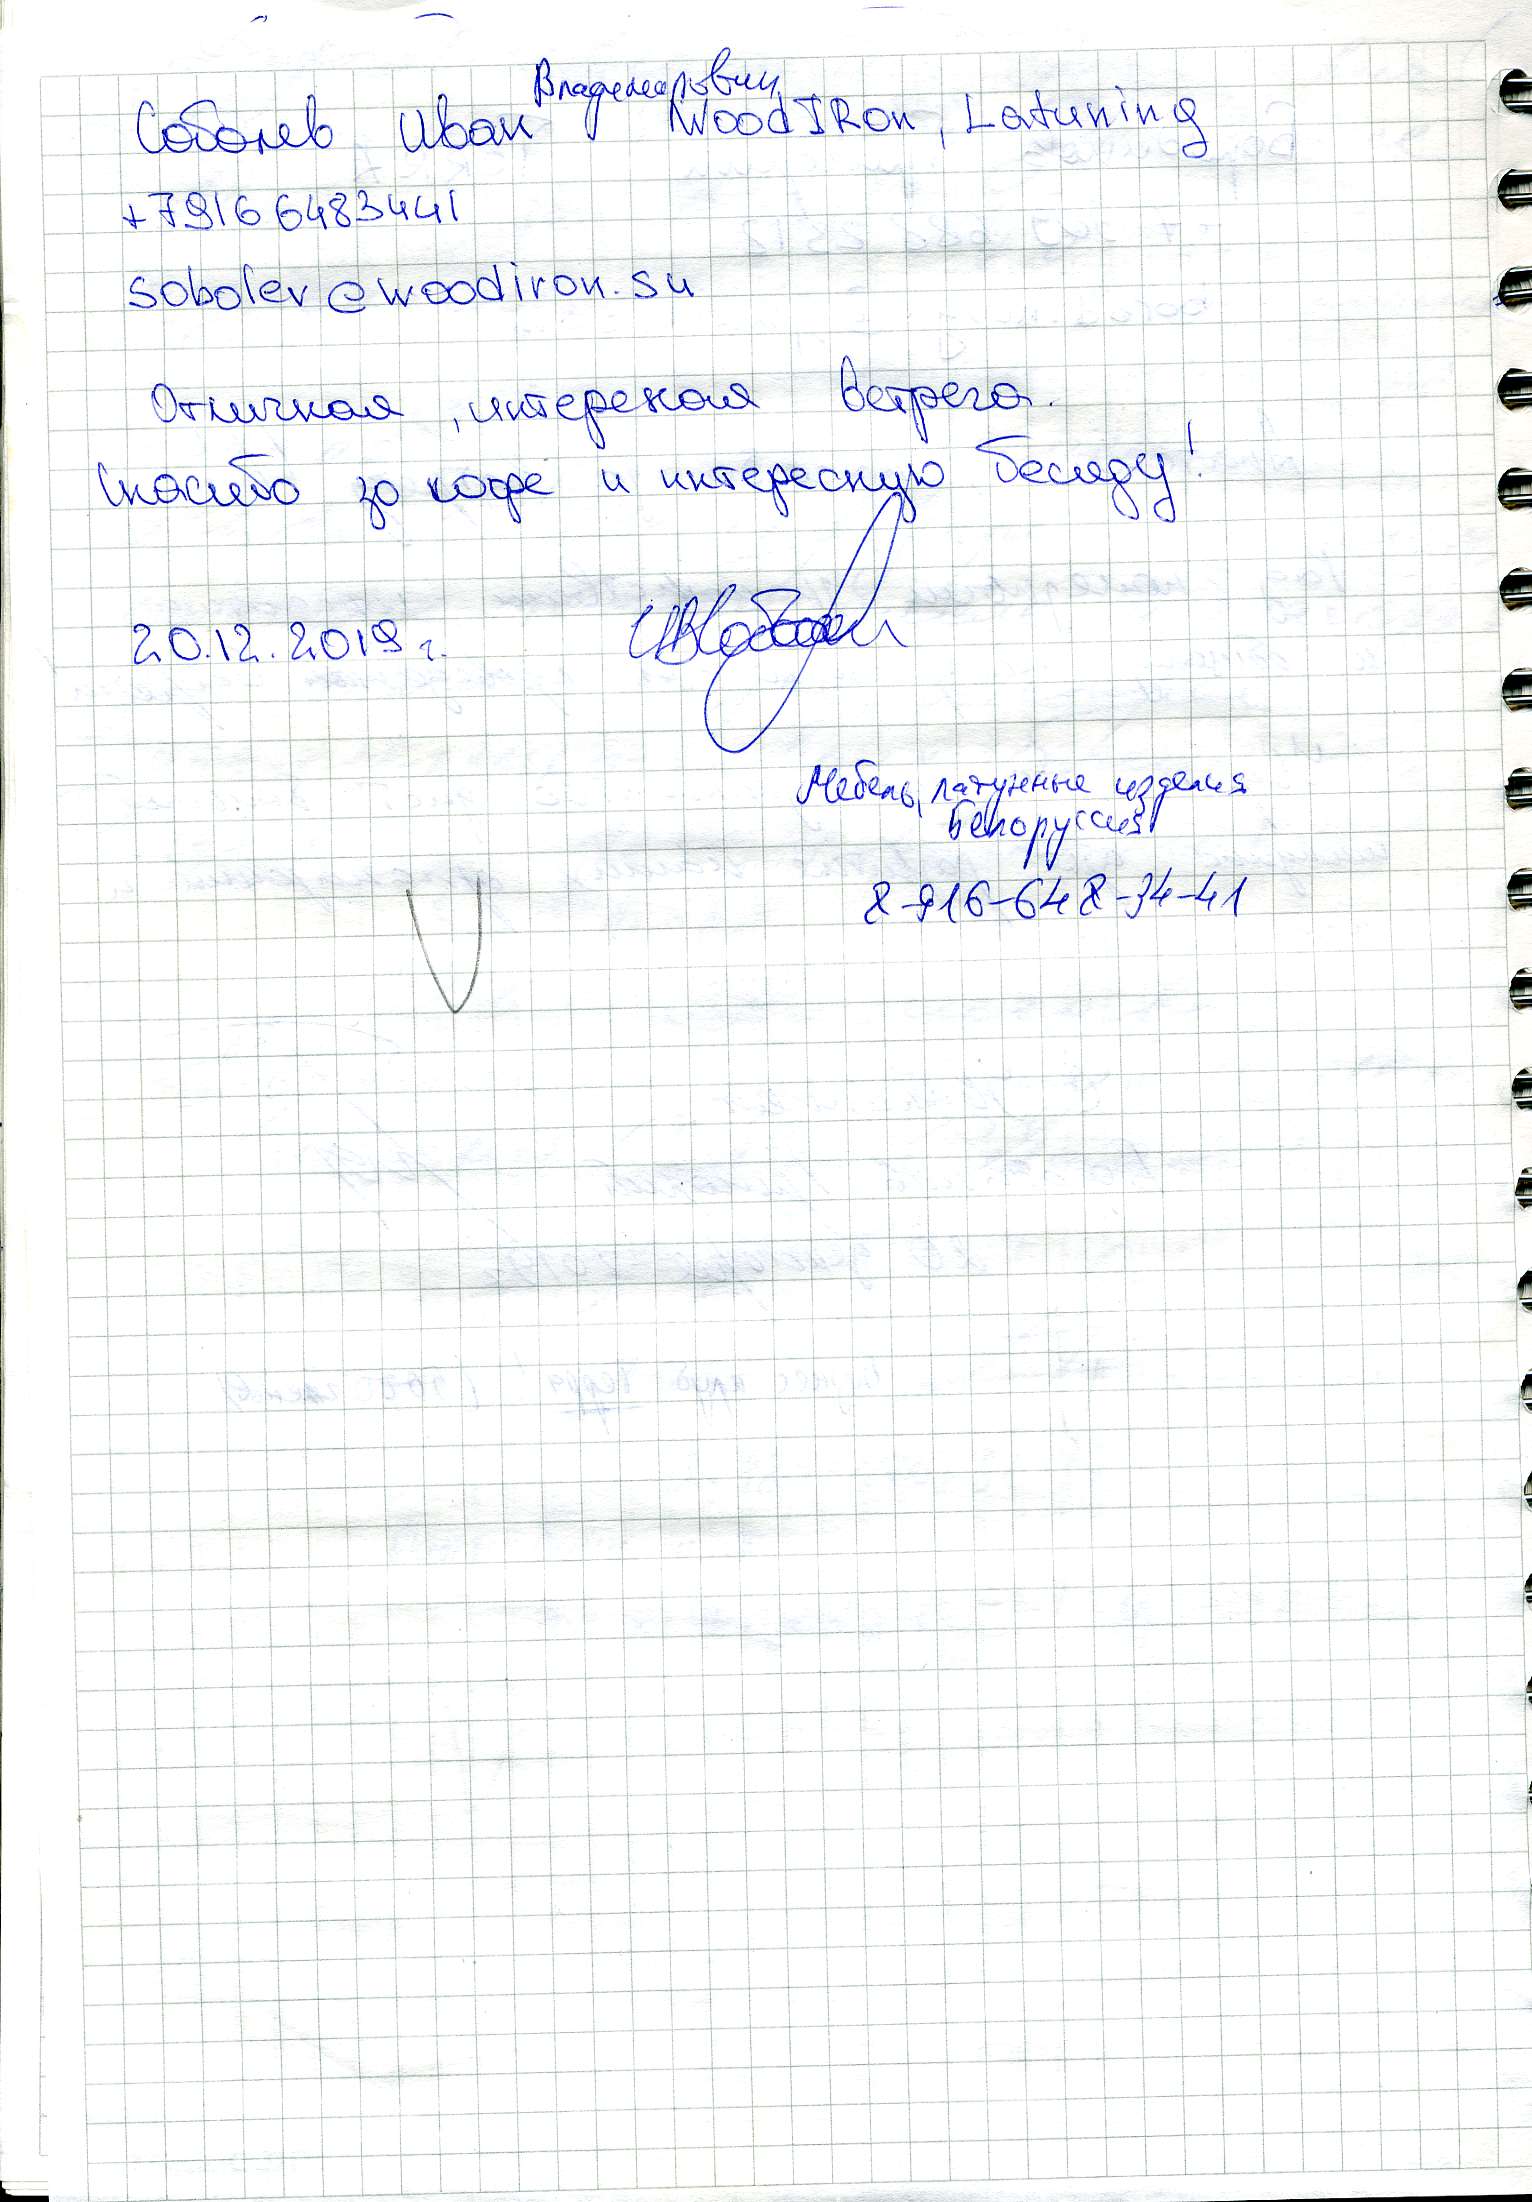 Соболев Иван Владимирович WoodIRon, Latuning
+79166483441
sobolev@woodiron.su
Отличная, интересная встреча.
Спасибо за кофе и интересную беседу!
20.12.2019 г.
Мебель, латунные изделия
Белоруссия
8-916-648-34-41